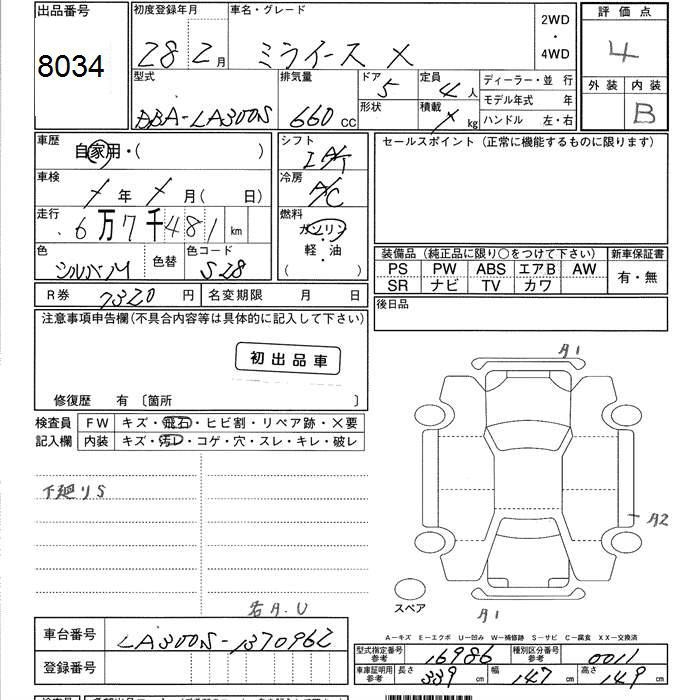 出品番号 初度登録年月 車名・グレード 2WD 評価点
8034 28年 2月 ミライース X ・ 4WD 4
型式 排気量 ドア 5 定員 4人 ディーラー・並 行 外装 内装
DBA-LA300S 660 cc 形状 積載 kg モデル年式 年 B
ハンドル 左・右
車歴 自家用・( ) シフト IAT セールスポイント(正常に機能するものに限ります)
車検 年 月( 日) 冷房 A/C
走行 6万7千481 km 燃料 ガソリン
色 シルバーM 色替 色コード S28 軽・油 ( ) 装備品(純正品に限り○をつけて下さい) 新車保証書
PS PW ABS エアB AW 有・無
R券 7320 円 名変期限 月 日 SR ナビ TV カワ
注意事項申告欄(不具合内容等は具体的に記入して下さい) 後日品
初出品車
修復歴 有 〔箇所 〕
A1
検査員 FW キズ・飛石・ヒビ割・リペア跡・×要
記入欄 内装 キズ・汚レ・コゲ・穴・スレ・キレ・破レ
下廻りS
A2
スペア A1
名A.U
車台番号 LA300S-1370962
A－キズ E－エクボ U－凹み W－補修跡 S－サビ C－腐食 XX－交換済
型式指定番号 参考 16986 種別区分番号 参考 0011
登録番号 車庫証明用 参考 長さ 339 cm 幅 147 cm 高さ 149 cm